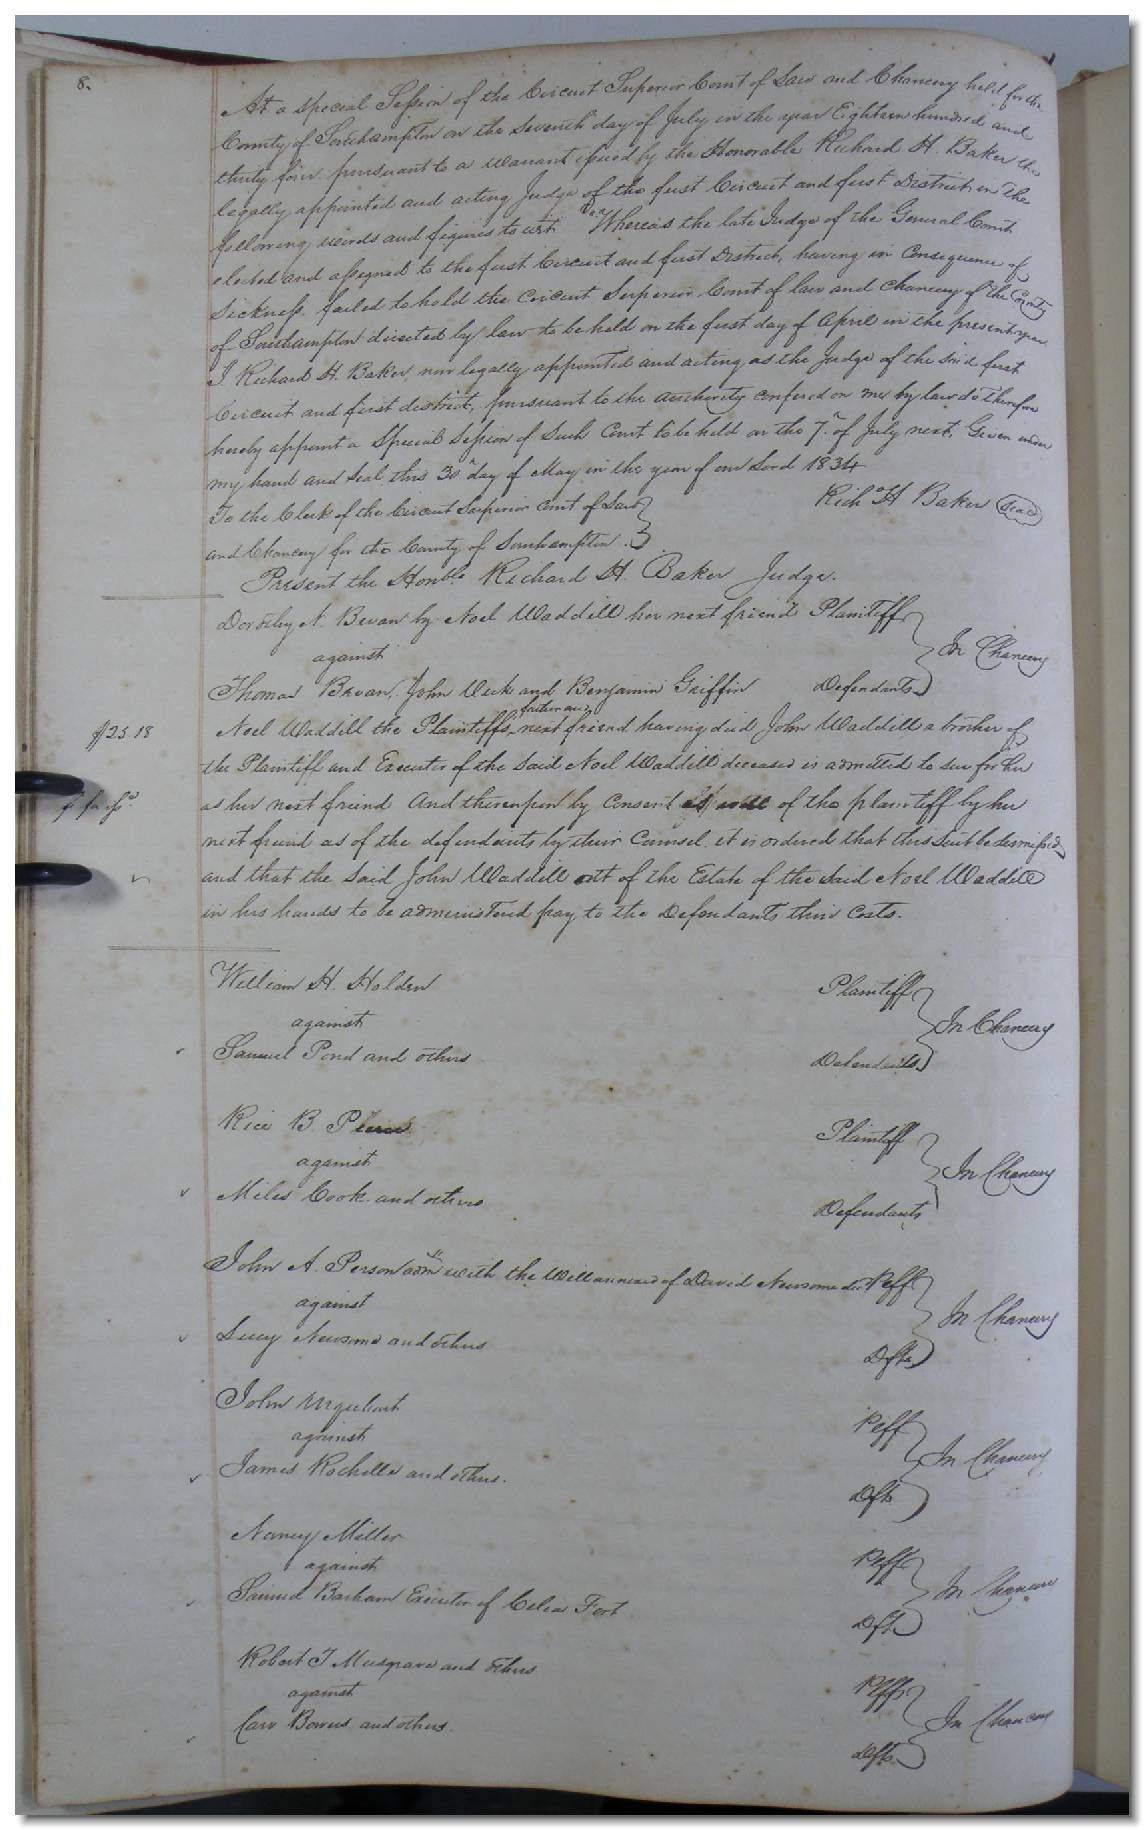 8.
At a special Session of the Circuit Superior Court of Law and Chancery held for the
County of Southampton on the Seventh day of July in the year Eighteen hundred and
thirty four. pursuant to a warrant issued by the Honorable Richard H. Baker the
legally appointed and acting Judge of the first Circuit and first District in the
following words and figures to wit Viz "Whereas the late Judge of the General Court
elected and assigned to the first Circuit and first District, having in Consequence of
Sickness. failed to hold the Circuit Superior Court of law and Chancery of the County
of Southampton directed by law to be held on the first day of April in the present year
I Richard H. Baker, now legally appointed and acting as the Judge of the said first
Circuit and first district, pursuant to the authority confered on me by law do therefore
hereby appoint a Special Session of Such Court to be held on the 7th of July next, Given under
my hand and seal this 30th day of May in the year of our Lord 1834
Richd H Baker (Seal)
To the Clerk of the Circuit Superior Court of Law
and Chancery for the County of Southampton.
Present the Honble Richard H. Baker Judge.
Dorothy N. Bevan by Noel Waddill her next friend Plaintiff
against In Chancery
Thomas Bevan, John and Benjamin Griffin Defendants
father and
$25.18 Noel Waddill the Plaintiffs next friend having died John Waddill a brother of
the Plaintiff and Executor of the said Noel Waddill deceased is admitted to sue for her
fi fa as her next friend And thereupon by Consent as well of the plaintiff by her
next friend as of the defendants by their Counsel. it is ordered that this Suit be dismissed
and that the said John Waddill out of the Estate of the said Noel Waddill
in his hands to be administered pay to the Defendants their Costs.
William H. Holden Plaintiff
against In Chancery
Samuel Pond and others Defendants
Rice B. Pierce Plaintiff
against In Chancery
Miles Cook. and others Defendants
John A. Person admr with the Will annexed of David Newsome decd Plff
against In Chancery
Lucy Newsome and others Defts
John Urquhart Plff
against In Chancery
James Rochelle and others. Defts
Nancy Miller Plff
against In Chancery
Samuel Barham Executor of Celia Fort Deft
Robert T Musgrave and others Plffs
against In Chancery
Carr Bowers and others. Defts